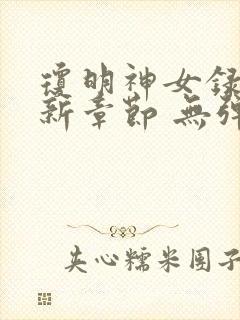 瓊明神女録
新章節 無彈
夹心糯米团子